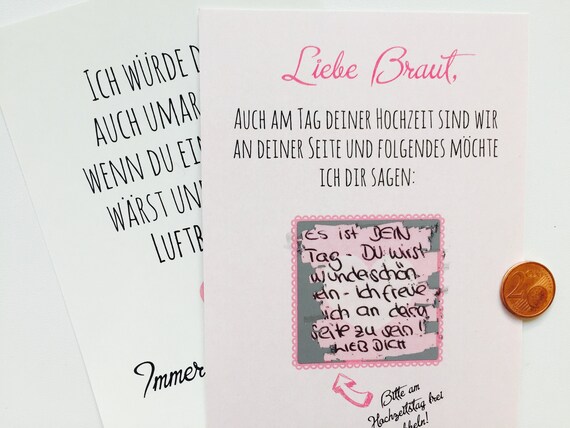 Ich würde d
auch umar
wenn du ein
wärst un
Luftb
Immer
Liebe Braut,
Auch am Tag deiner Hochzeit sind wir
an deiner Seite und folgendes möchte
ich dir sagen:
ES ist DEIN
Tag - Du wirst
wunderschön
ein - Ich freue
ich an deine
seite zu sein!!
LIEB DICH
Bitte am
Hochzeitstag frei
bbeln!
2